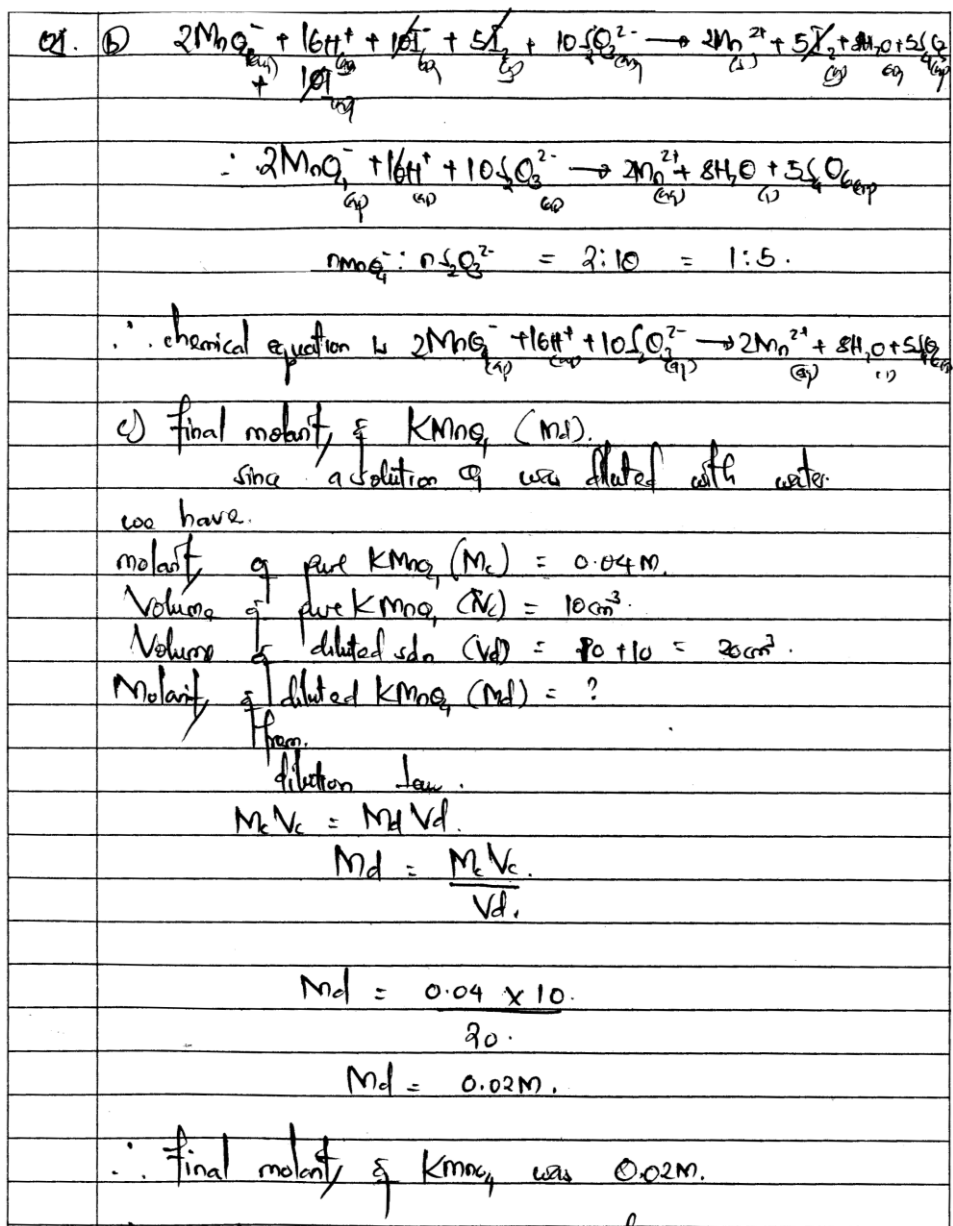 01. (b) 2MnO₄⁻(aq) + 16H⁺(aq) + 10I⁻(aq) + 5I₂(s) + 10S₂O₃²⁻(aq) → 2Mn²⁺(s) + 5I₂(s) + 8H₂O(aq) + 5S₄O₆(aq)
+ 10I(aq)
∴ 2MnO₄⁻(aq) + 16H⁺(aq) + 10S₂O₃²⁻(aq) → 2Mn²⁺(aq) + 8H₂O(l) + 5S₄O₆(aq)
nMnO₄⁻ : nS₂O₃²⁻ = 2:10 = 1:5.
∴ chemical equation is 2MnO₄⁻(aq) + 16H⁺(aq) + 10S₂O₃²⁻(aq) → 2Mn²⁺(aq) + 8H₂O(l) + 5S₄O₆(aq)
c) final molarity of KMnO₄ (Md).
since a solution of was diluted with water.
we have.
molarity of pure KMnO₄ (Mc) = 0.04M.
Volume of pure KMnO₄ (Vc) = 10cm³.
Volume of diluted soln (Vd) = 10 + 10 = 20cm³.
Molarity of diluted KMnO₄ (Md) = ?
from.
dilution law.
McVc = MdVd.
Md = McVc.
Vd.
Md = 0.04 × 10.
20.
Md = 0.02M.
∴ final molarity of KMnO₄ was 0.02M.